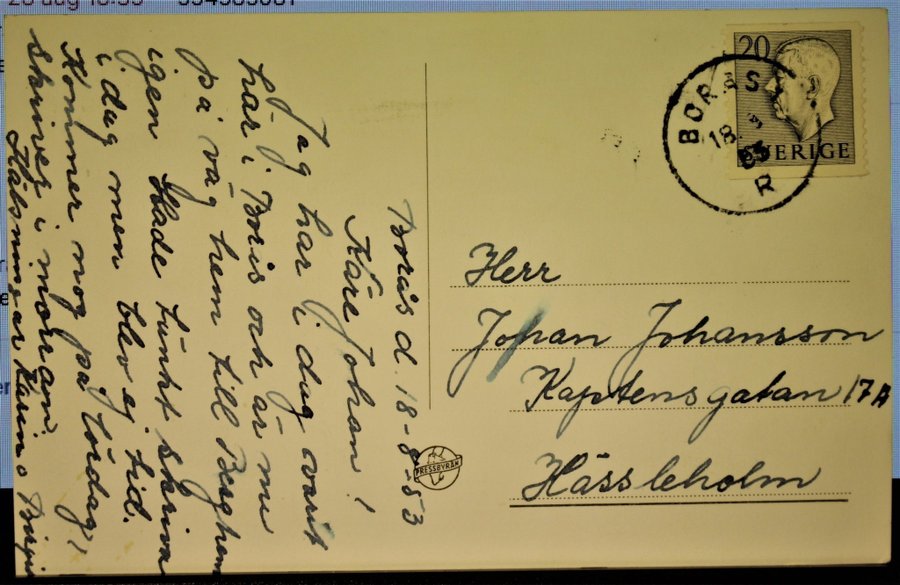 Borås d. 18-8-53
Käre Johan!
Jag har i dag varit
här i Borås och är nu
på väg hem till Berghem
igen. Hade tänkt skriva
i dag men blev ej tid.
Kommer nog på lördag,
skriver i morron.
Hälsningar Karin o Birgit
20
SVERIGE
BORÅS
18. 8. 53
R
PRESSBYRÅN
Herr
Johan Johansson
Kaptensgatan 17A
Hässleholm